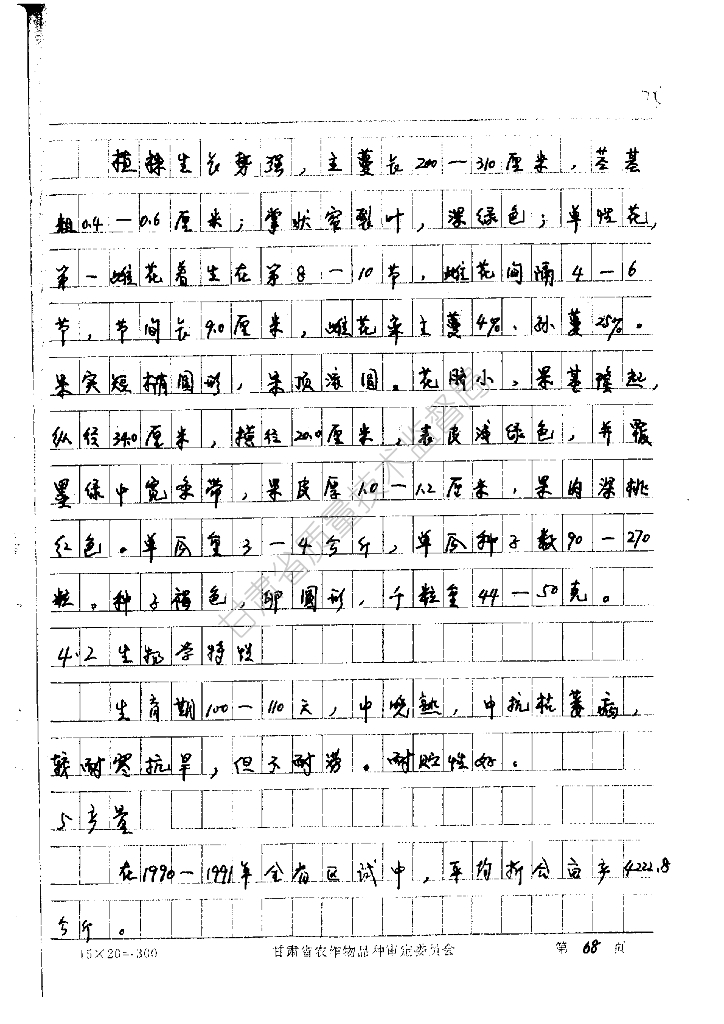 植株生长势强，主蔓长200—310厘米，茎基
粗0.4—0.6厘米；掌状密裂叶，深绿色；单性花，
第一雌花着生在第8—10节，雌花间隔4—6
节，节间长9.0厘米，雌花率主蔓4%、孙蔓25%。
果实短椭圆形，果顶浓圆。花脐小、果基隆起，
纵径34.0厘米，横径20.0厘米，表皮浅绿色，并覆
墨绿中宽条带，果皮厚1.0—1.2厘米，果肉深桃
红色。单瓜重3—4公斤，单瓜种子数90—270
粒。种子褐色，卵圆形，千粒重44—50克。
4.2生物学特性
生育期100—110天，中晚熟，中抗枯萎病，
较耐寒抗旱，但不耐涝。耐贮性好。
5产量
在1990—1991年全省区试中，平均折合亩产4222.8
公斤。
15×20=300 甘肃省农作物品种审定委员会 第68页
甘肃省质量技术监督局